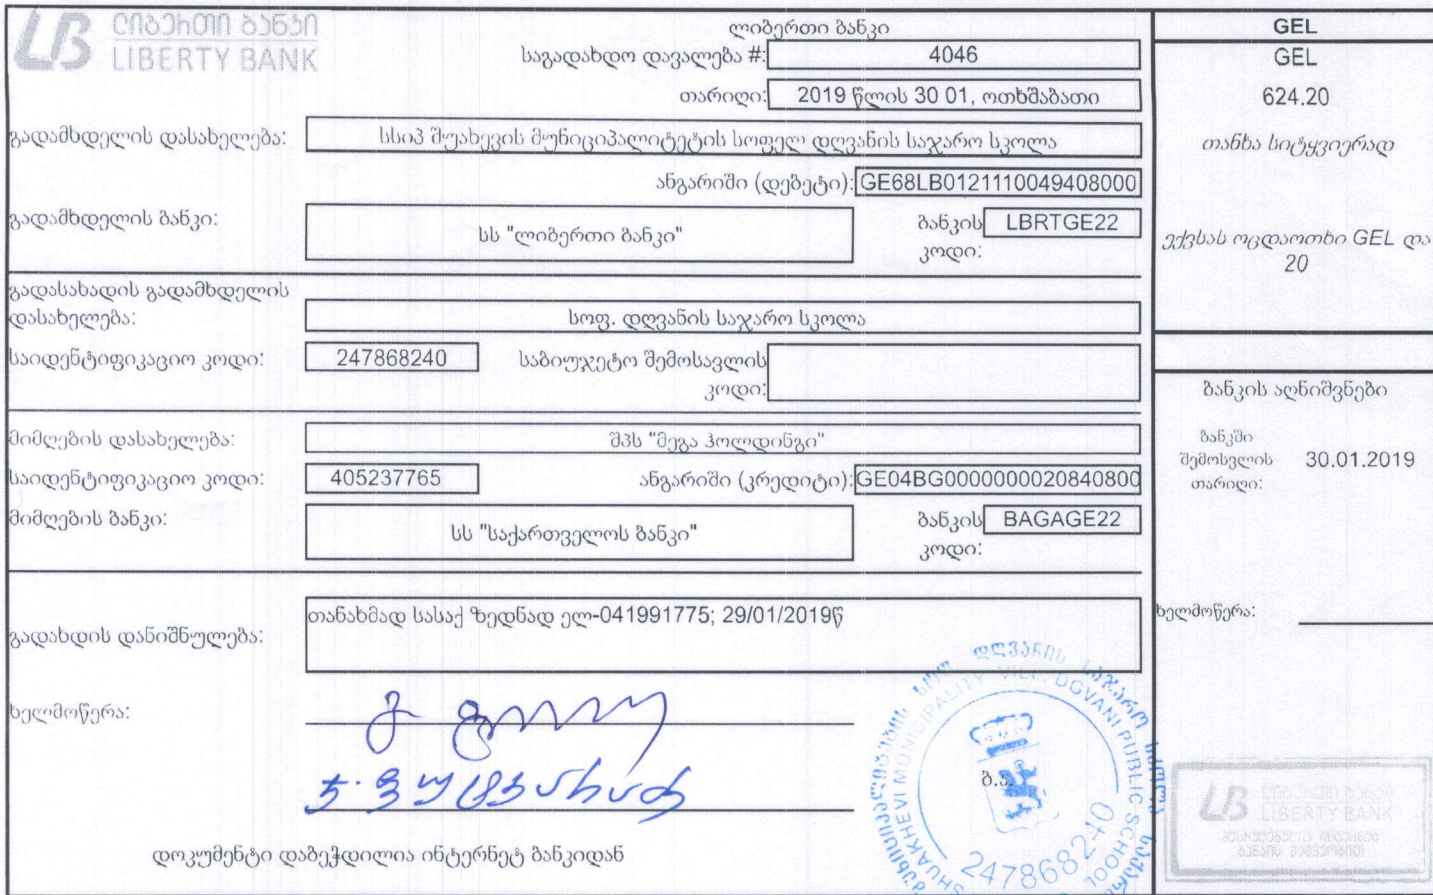 ლიბერთი ბანკი
LIBERTY BANK
ლიბერთი ბანკი
საგადახდო დავალება #: 4046
თარიღი: 2019 წლის 30 01, ოთხშაბათი
გადამხდელის დასახელება: სსიპ შუახევის მუნიციპალიტეტის სოფელ დღვანის საჯარო სკოლა
ანგარიში (დებეტი): GE68LB0121110049408000
გადამხდელის ბანკი: სს "ლიბერთი ბანკი" ბანკის კოდი: LBRTGE22
გადასახადის გადამხდელის
დასახელება: სოფ. დღვანის საჯარო სკოლა
საიდენტიფიკაციო კოდი: 247868240 საბიუჯეტო შემოსავლის
კოდი:
მიმღების დასახელება: შპს "მეგა ჰოლდინგი"
საიდენტიფიკაციო კოდი: 405237765 ანგარიში (კრედიტი): GE04BG0000000020840800
მიმღების ბანკი: სს "საქართველოს ბანკი" ბანკის კოდი: BAGAGE22
გადახდის დანიშნულება: თანახმად სასაქ ზედნად ელ-041991775; 29/01/2019წ
ხელმოწერა:
ბ.ა.
დოკუმენტი დაბეჭდილია ინტერნეტ ბანკიდან
GEL
GEL
624.20
თანხა სიტყვიერად
ექვსას ოცდაოთხი GEL და
20
ბანკის აღნიშვნები
ბანკში
შემოსვლის 30.01.2019
თარიღი:
ხელმოწერა:
SHUAKHEVI MUNICIPALITY VILL. DGVANI PUBLIC SCHOOL
247868240
ლიბერთი ბანკი
LIBERTY BANK